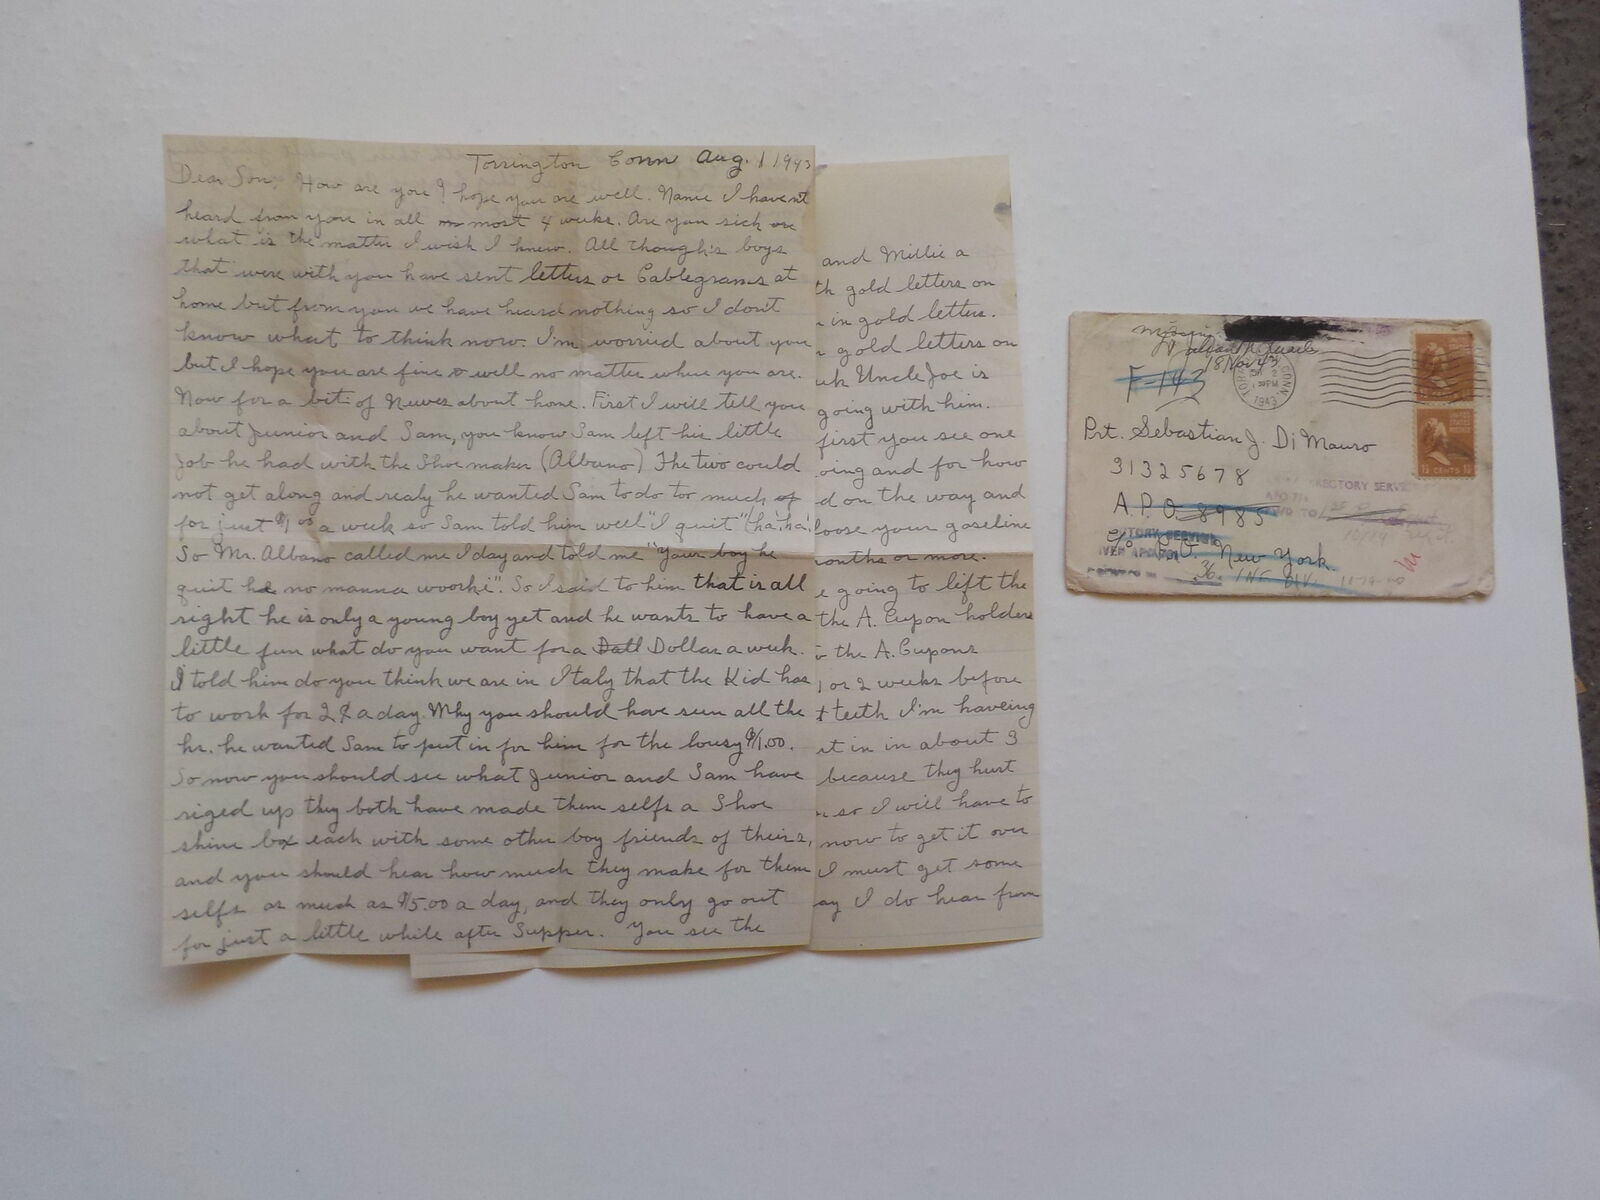 Torrington Conn Aug. 1 1943
Dear Son, How are you? hope you are well. Nanu I havent
heard from you in all most 4 weeks. Are you sick or
what is the matter I wish I knew. All though's boys
that were with you have sent letters or Cablegrams at
home but from you we have heard nothing so I don't
know what to think now. I'm worried about you
but I hope you are fine & well no matter where you are.
Now for a bit of Newes about home. First I will tell you
about Junior and Sam, you know Sam left his little
Job he had with the Shoe maker (Albano) The two could
not get along and realy he wanted Sam to do too much of
for just $1.00 a week so Sam told him well "I quit" (ha! ha!
So Mr. Albano called me I day and told me "Your boy he
quit he no manna woorke". So I said to him that is all
right he is only a young boy yet and he wants to have a
little fun what do you want for a Doll Dollar a week.
I told him do you think we are in Italy that the Kid has
to work for 2¢ a day. Why you should have seen all the
hr. he wanted Sam to put in for him for the lousy $1.00.
So now you should see what Junior and Sam have
riged up they both have made them selfs a Shoe
shine box each with some other boy friends of theirs,
and you should hear how much they make for them
selfs as much as $5.00 a day, and they only go out
for just a little while after Supper. You see the
and Millie a
th gold letters on
in gold letters.
gold letters on
uk Uncle Joe is
going with him.
first you see one
oing and for how
d on the way and
loose your gaseline
months or more.
e going to left the
the A. Cupon holders
the A. Cupons
1 or 2 weeks before
t teeth I'm haveing
it in in about 3
because they hurt
so I will have to
now to get it over
I must get some
ay I do hear from
missing
18 Nov 43
F-143
CONN.
2
PM
1943
UNITED STATES POSTAGE
1½ CENTS 1½
Pvt. Sebastian J. Di Mauro
31325678
A.P.O. 8985
DIRECTORY SERVICE
c/o P.M. New York.
36. INF DIV.